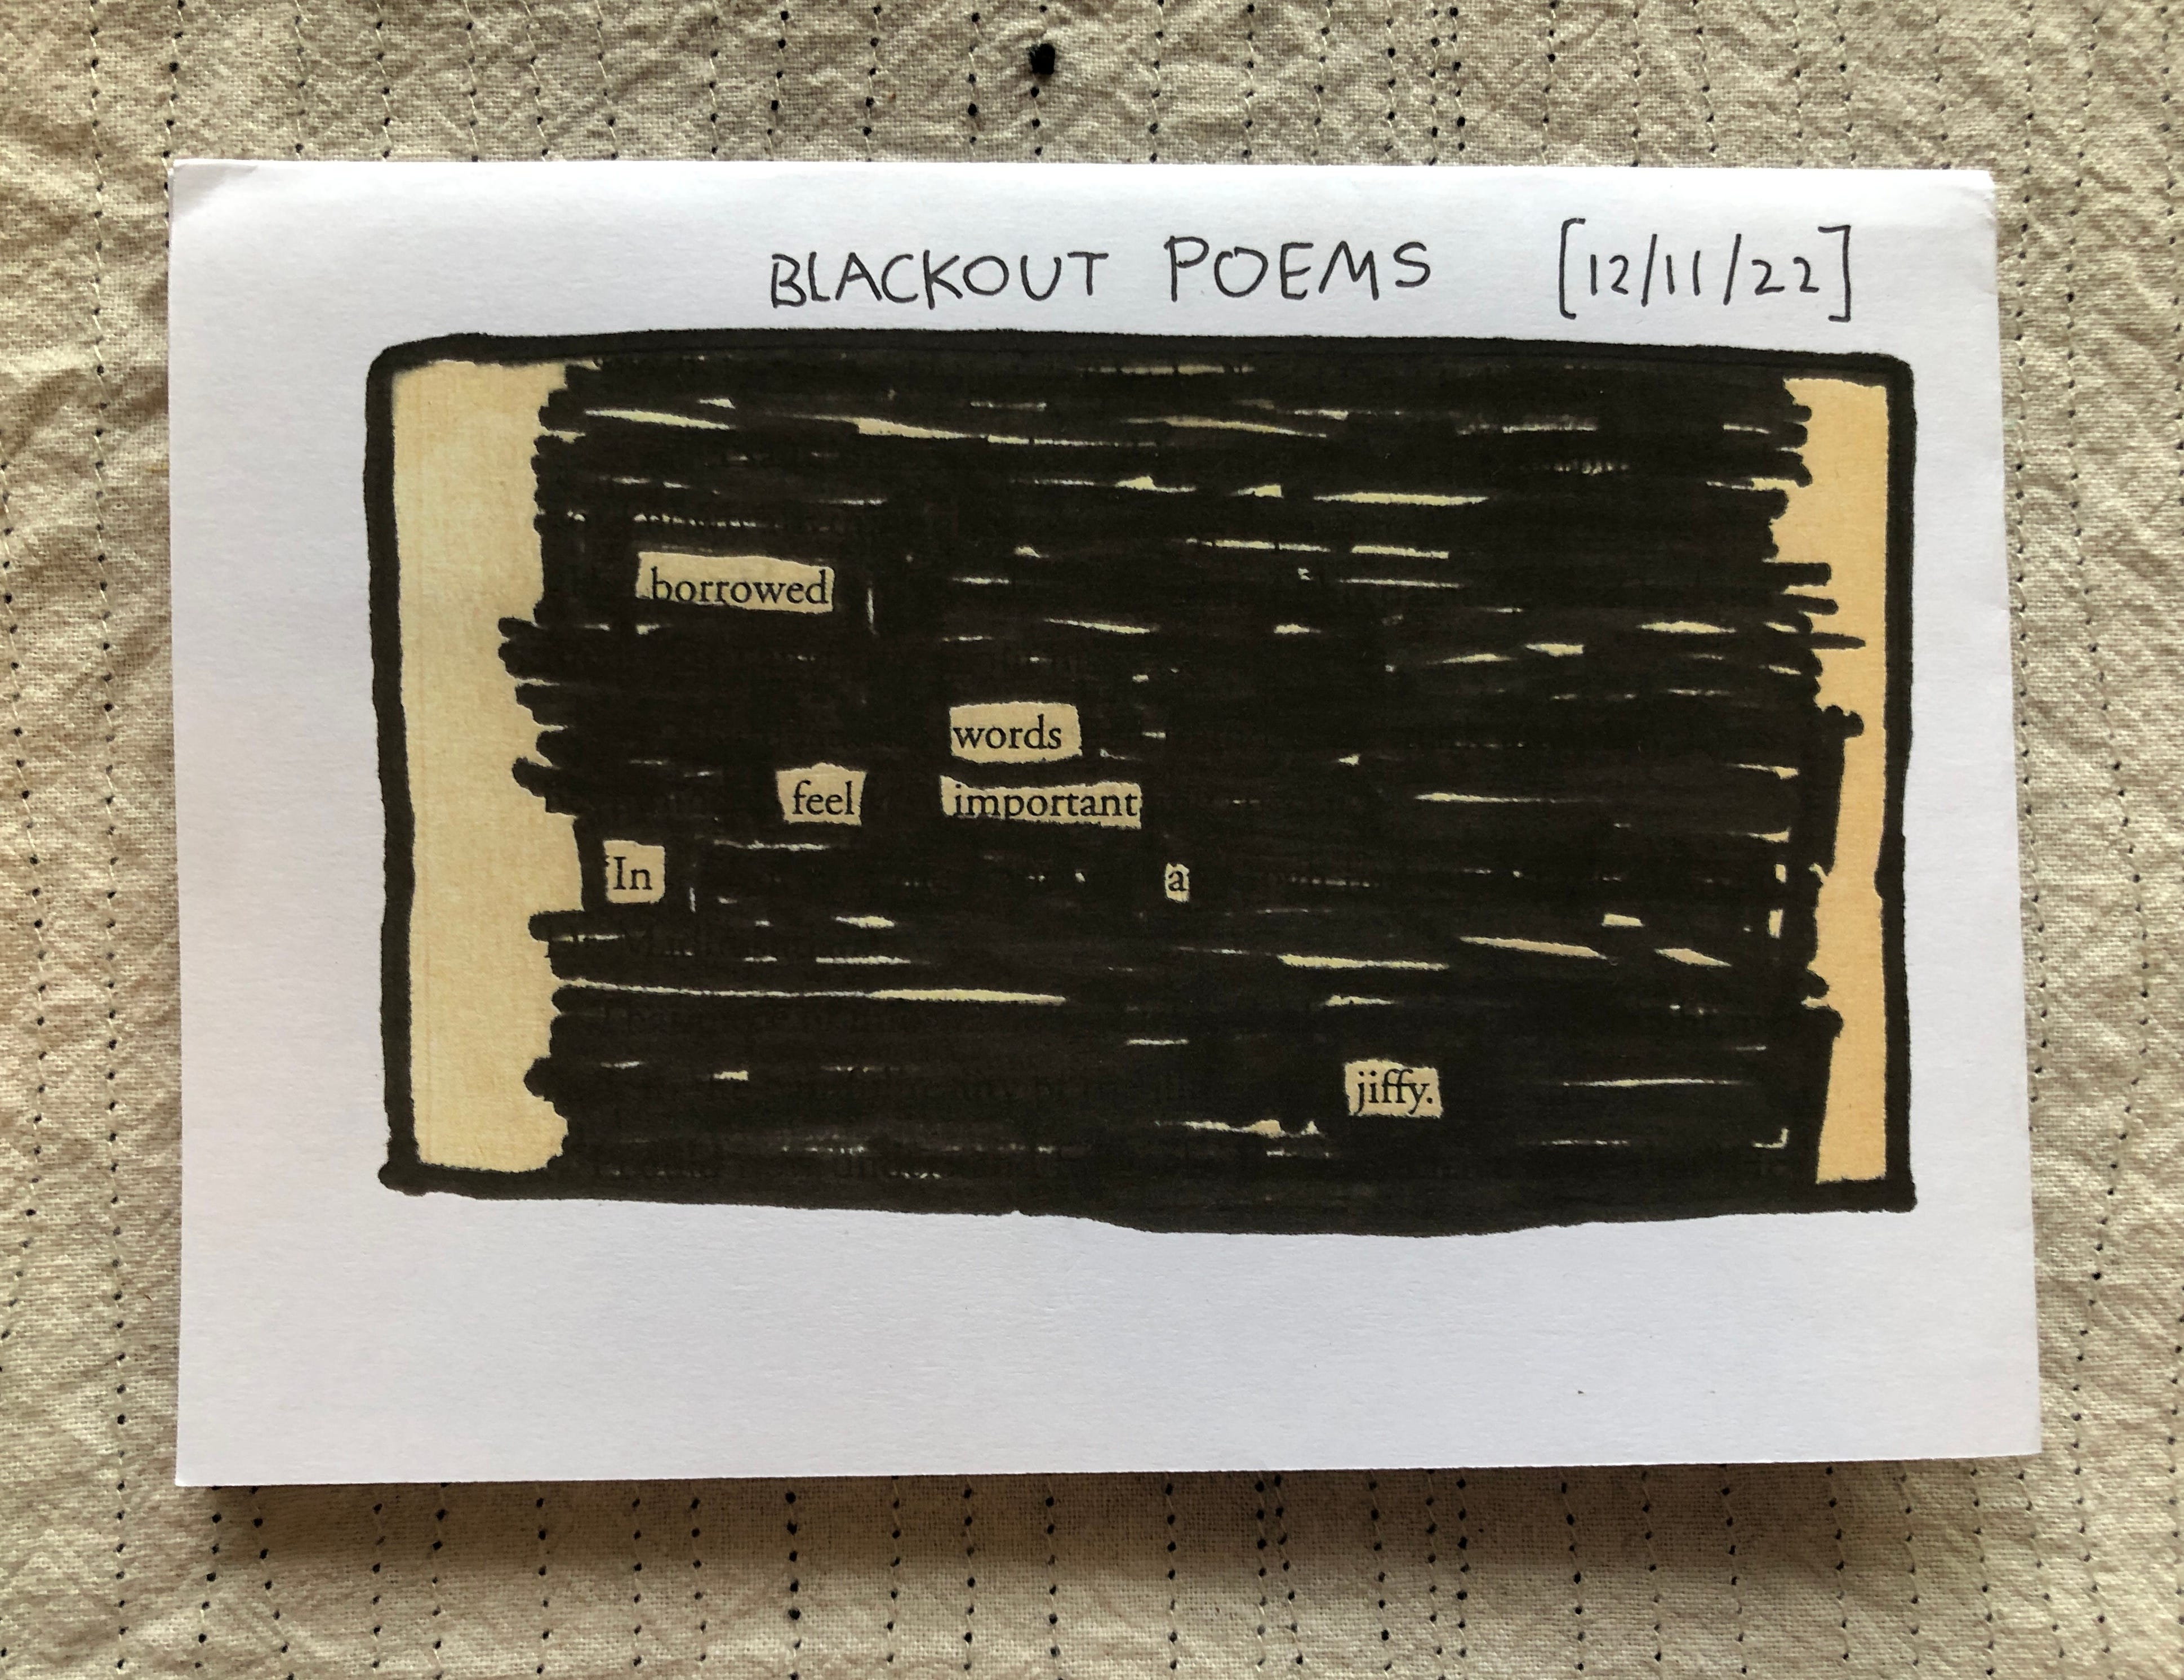 BLACKOUT POEMS [12/11/22]
borrowed
words
feel important
In a
jiffy.